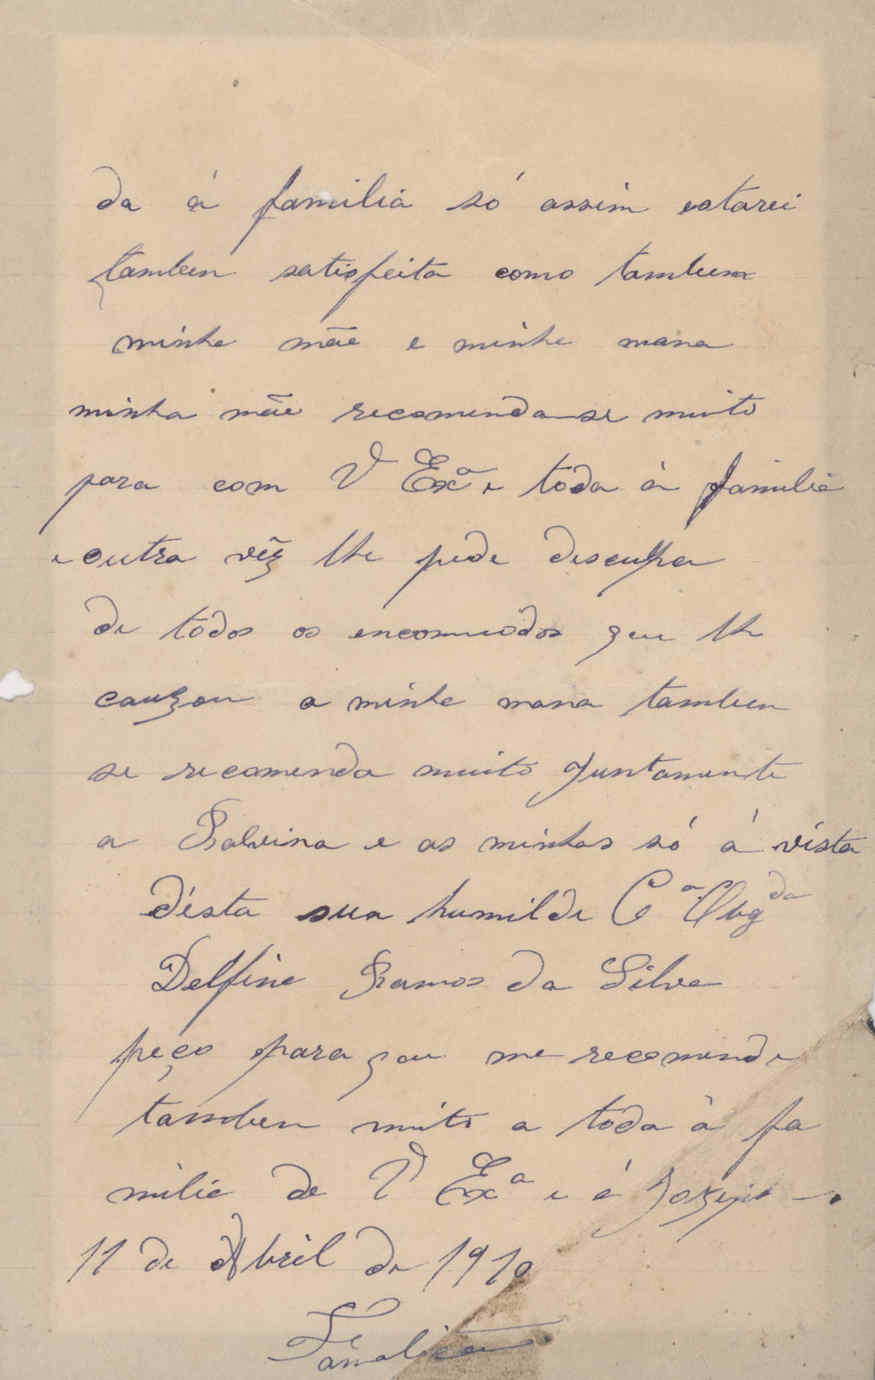 da á familia só assim estarei
tambem satisfeita como tambem
minha mãe e minha mana
minha mãe recomenda-se muito
para com V Exª e toda á familia
e outra vêz lhe pede desculpa
de todos os encomodos que lhe
cauzou a minha mana tambem
se recomenda muito juntamente
a Balvina e as minhas só á vista
désta sua humilde Cª Obgda
Delfina Ramos da Silva
peço para que me recomende
tambem muito a toda á fa
milia de V Exª e á
11 de Abril de 1910